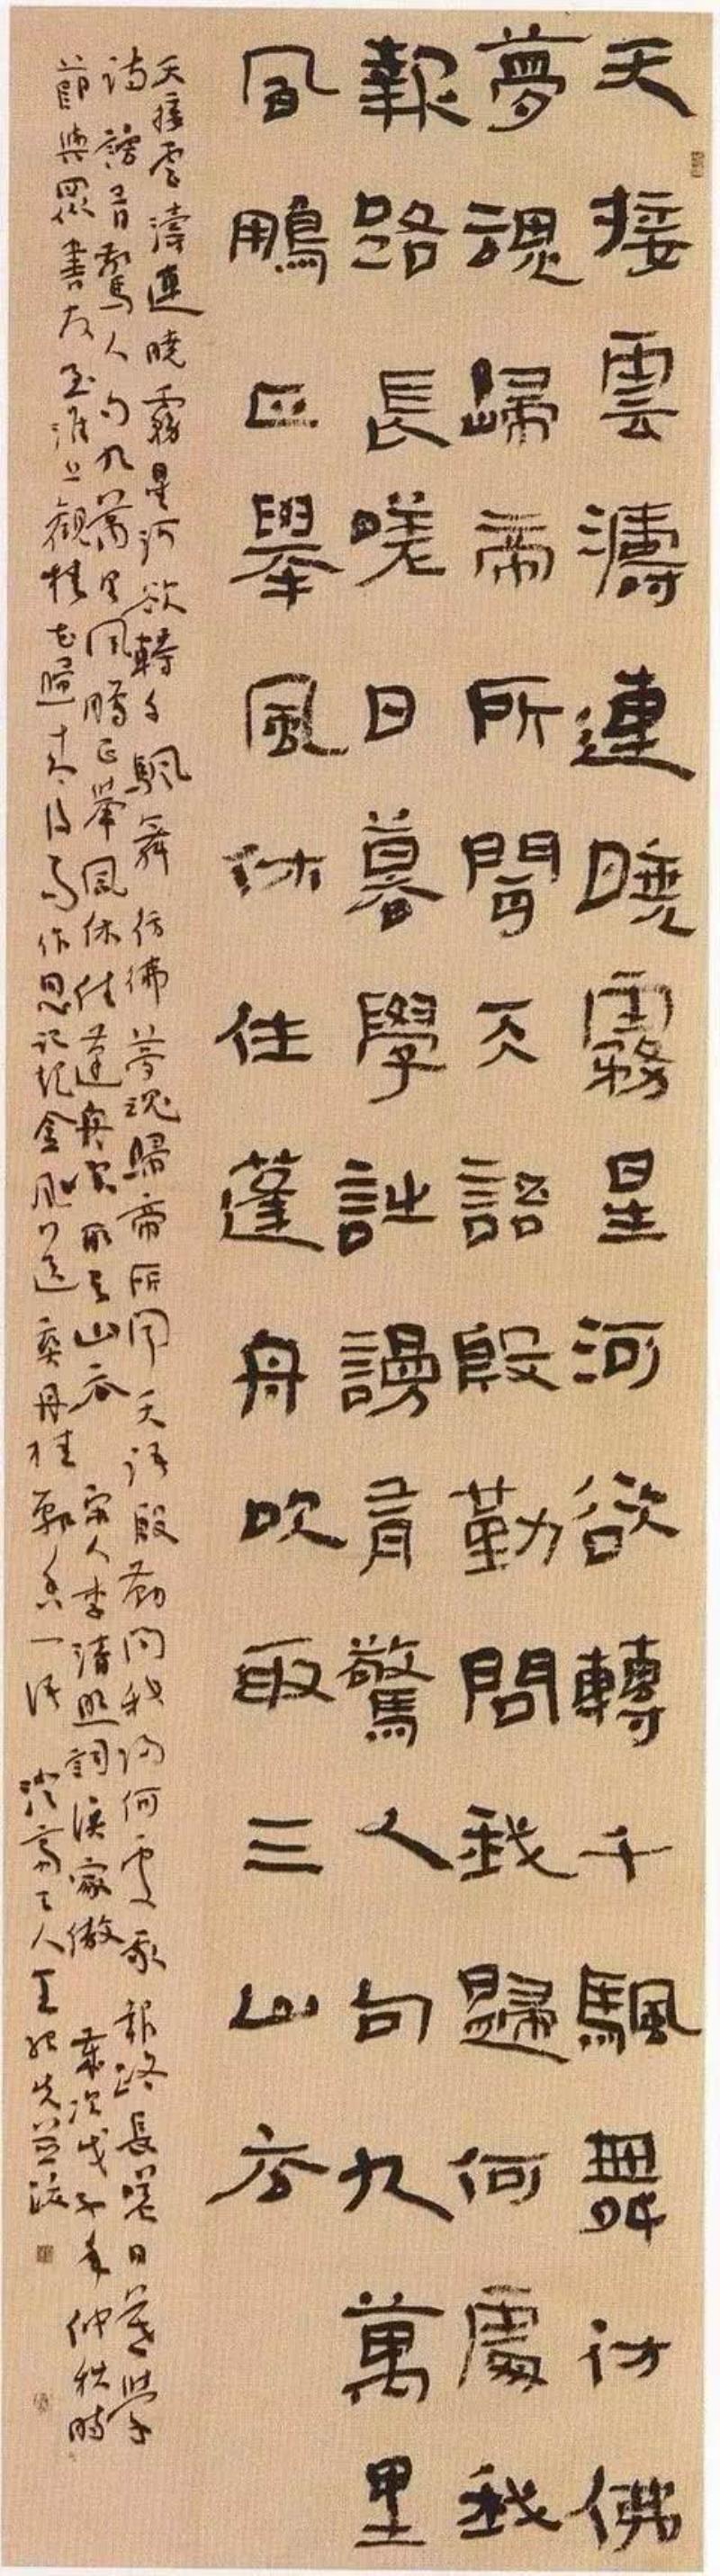 天接雲濤連曉霧星河欲轉千颿舞彷佛
夢魂歸帝所聞天語殷勤問我歸何處我
報路長嗟日暮學詩謾有驚人句九萬里
風鵬正舉風休住蓬舟吹取三山去
天接雲濤連曉霧星河欲轉千颿舞彷彿夢魂歸帝所聞天語殷勤問我歸何處我報路長嗟日暮學
詩謾有驚人句九萬里風鵬正舉風休住蓬舟吹取三山去 宋人李清照詞漁家傲 歲次戊子年仲秋時
節與眾書友至淮上觀桂花歸金風送爽丹桂飄香一